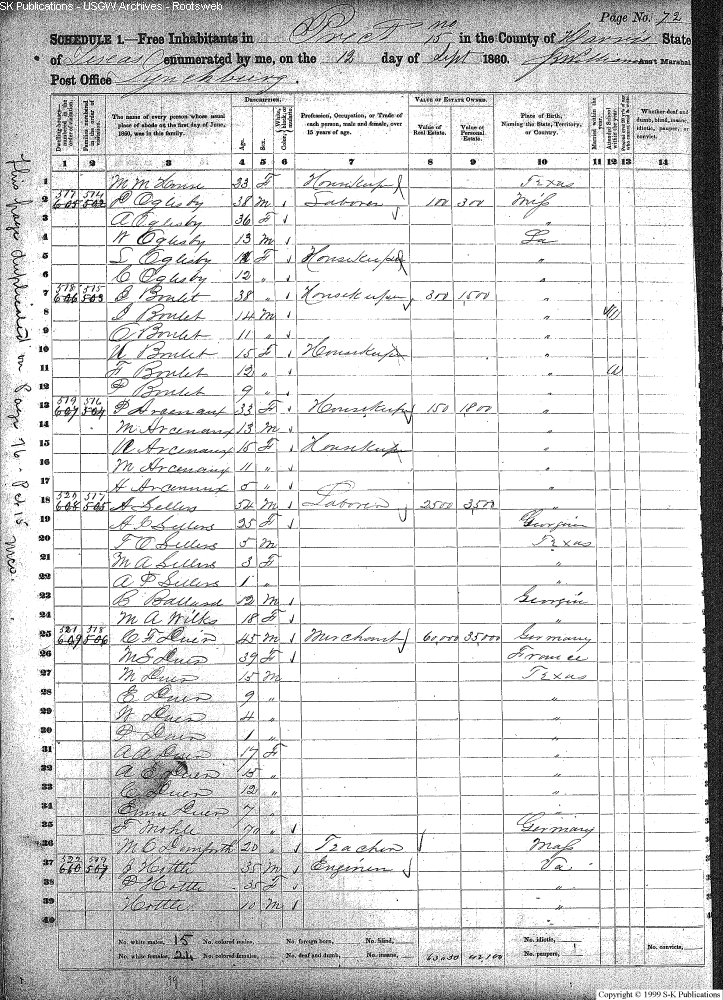 SK Publications - USGW Archives - Rootsweb
Page No. 72
SCHEDULE 1.—Free Inhabitants in Prect no 15 in the County of Harris State
of Texas enumerated by me, on the 12 day of Sept 1860. Ass't Marshal
Post Office Lynchburg.
DESCRIPTION. VALUE OF ESTATE OWNED.
Dwelling-houses numbered in the order of visitation.
Families numbered in the order of visitation.
The name of every person whose usual place of abode on the first day of June, 1860, was in this family.
Age. Sex. Color,
Profession, Occupation, or Trade of each person, male and female, over 15 years of age.
Value of Real Estate. Value of Personal Estate.
Place of Birth, Naming the State, Territory, or Country.
Married within the year. Attended School within the year.
Whether deaf and dumb, blind, insane, idiotic, pauper, or convict.
1 2 3 4 5 6 7 8 9 10 11 12 13 14
1 M M House 23 F Housekeeper Texas
2 517 514 605 502 P Oglesby 38 M Laborer 100 300 Miss
3 A Oglesby 36 F "
4 W Oglesby 13 M La
5 L Oglesby F Housekeeper "
6 C Oglesby 12 " "
7 518 515 606 503 B Boulet 38 " Housekeeper 300 1500 "
8 J Boulet 14 M "
9 C Boulet 11 " "
10 U Boulet 15 F Housekeeper "
11 F Boulet 12 " "
12 P Boulet 9 " "
13 519 516 607 504 P Arcenaux 33 F Housekeeper 150 1800 "
14 M Arcenaux 13 M "
15 U Arcenaux 15 F Housekeeper "
16 M Arcenaux 11 " "
17 A Arcenaux 5 " "
18 520 517 608 505 A Sellers 54 M Laborer 2500 3500 "
19 A E Sellers 25 F Georgia
20 F O Sellers 5 M Texas
21 M A Sellers 3 F "
22 A P Sellers 1 " "
23 B Ballard 12 M Georgia
24 M A Wilks 18 F "
25 521 518 609 506 C F Duer 45 M Merchant 60,000 35,000 Germany
26 M S Duer 39 F France
27 M Duer 15 M Texas
28 E Duer 9 " "
29 W Duer 4 " "
30 P Duer 1 " "
31 A A Duer 17 F "
32 A E Duer 15 " "
33 C Duer 12 " "
34 Emma Duer 7 " "
35 F Mohle 70 " Germany
36 M C Demforth 20 " Teacher Mass
37 522 519 610 507 J Hottle 35 M Engineer Va
38 P Hottle 35 F "
39 Hottle 10 M "
40
No. white males, 15 No. colored males, No. foreign born, No. blind, No. idiotic, No. convicts,
No. white females, 24 No. colored females, No. deaf and dumb, No. insane, 63050 42100 No. paupers, 1
This page duplicated on Page 76 - Pct 15 mco.
Copyright © 1999 S-K Publications